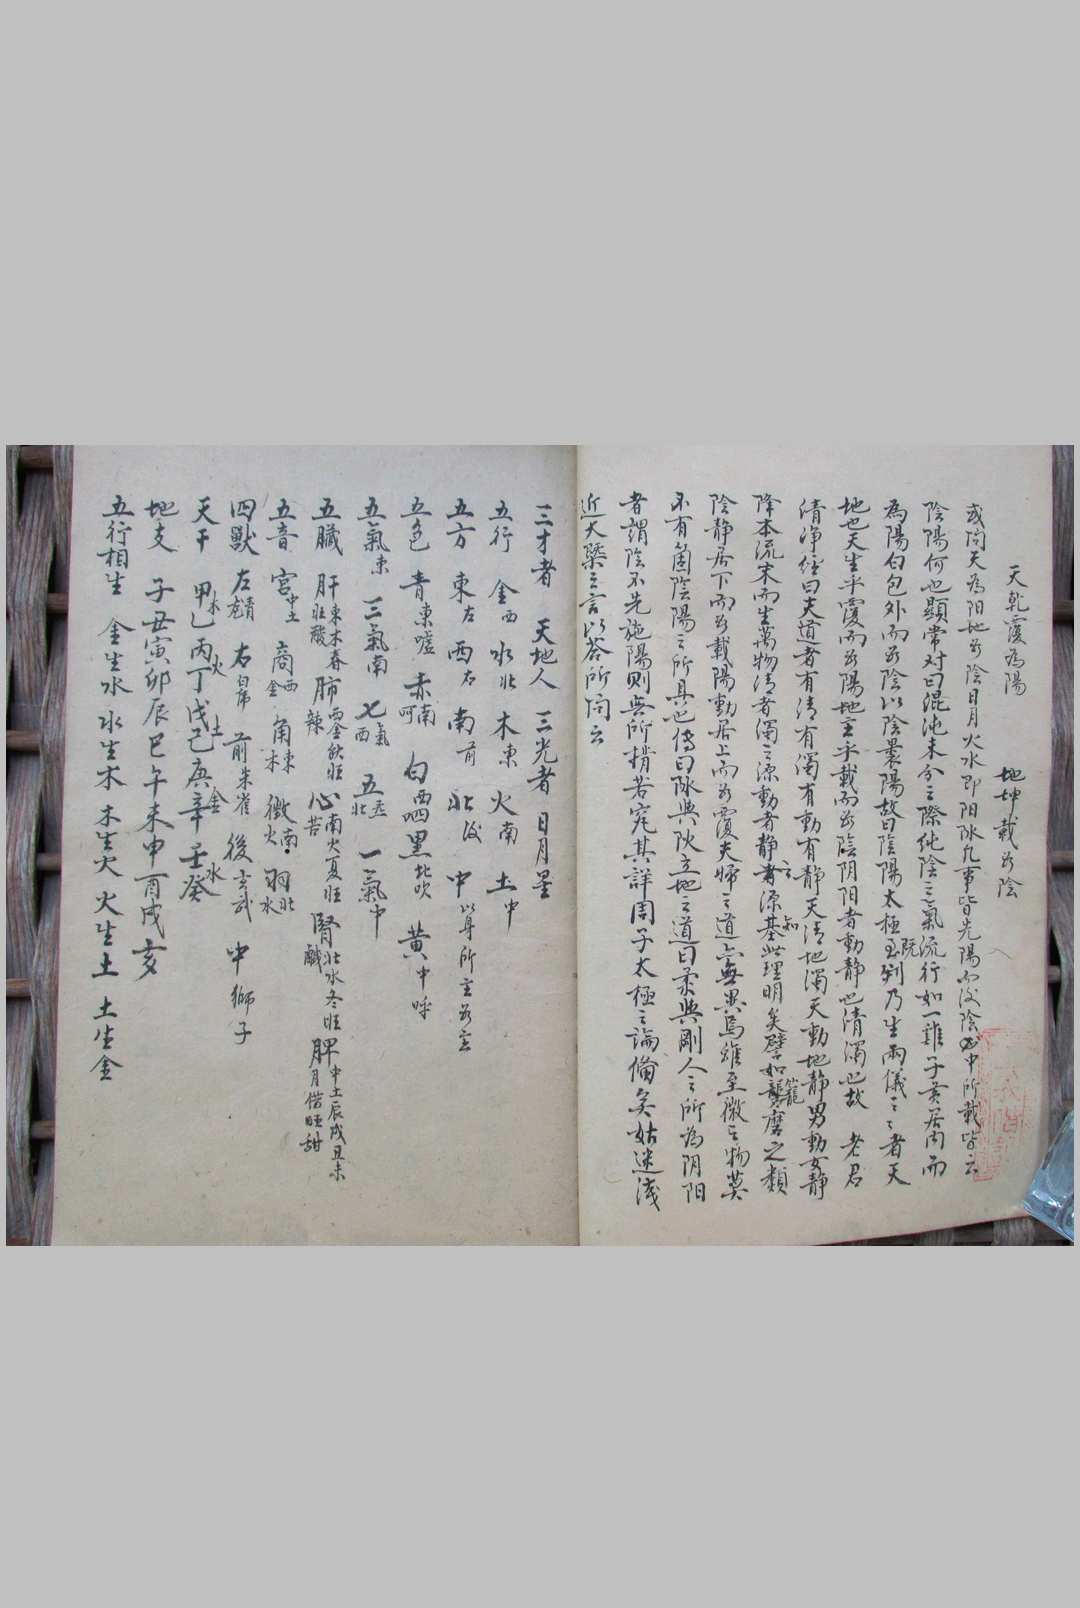 天乾覆為陽　地坤載为陰
或問天為阳地为陰日月火水即阳阴凡事皆先陽而後陰此中所載皆云
陰陽何也顯常对曰混沌未分之際純陰之氣流行如一雞子黃居內而
為陽白包外而为陰以陰裹陽故曰陰陽太極既判乃生兩儀〻者天
地也天生乎覆而为陽地主乎載而为陰阴阳者動静也清濁也故　老君
清淨經曰夫道者有清有濁有動有静天清地濁天動地静男動女静
降本流末而生萬物清者濁之源動者静之源基知此理明矣譬如籠磨之類
陰静居下而为載陽動居上而为覆夫婦之道亦無異焉雖至微之物莫
不有箇陰陽之所具也傳曰阴與阳立地之道曰柔與剛人之所為阴阳
者謂陰不先施陽則無所稍若究其詳周子太極之論備矣姑述淺
近大槩之言以答所问云
三才者　天地人　三光者　日月星
五行　金西　水北　木東　火南　土中
五方　東左　西右　南前　北後　中以身所主为主
五色　青東噓　赤南呵　白西呬　黑北吹　黃中呼
五氣東　三氣南　七氣西　五炁北　一氣中
五臓　肝東木春旺酸　肺西金秋旺辣　心南火夏旺苦　腎北水冬旺鹹　脾中土辰戌丑未月偕旺甜
五音　宮中土　商西金　角東木　徵南火　羽北水
四獸　左青龍　右白虎　前朱雀　後玄武　中獅子
天干　甲乙木　丙丁火　戊己土　庚辛金　壬癸水
地支　子丑寅卯辰巳午未申酉戌亥
五行相生　金生水　水生木　木生火　火生土　土生金